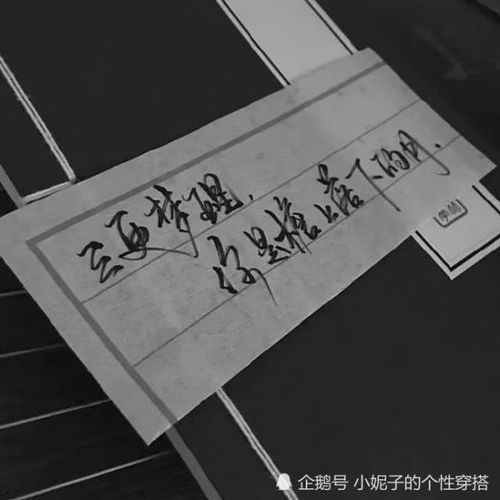 三更梦醒，
你是檐上落下的月.
企鹅号 小妮子的个性穿搭